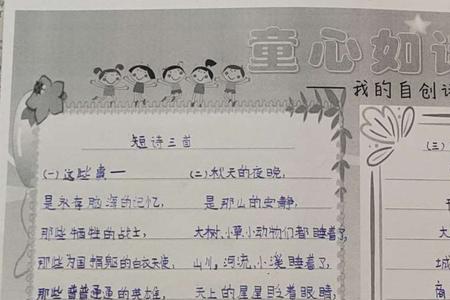 童心如
我的自创
短诗三首
(一)这些
是永存脑海的记忆,
那些牺牲的战士,
那些为国捐躯的白衣天使,
那些普普通通的英雄,
(二)秋天的夜晚,
是那山的安静,
大树、小草、小动物们都睡着了,
山川,河流,小溪睡着了,
天上的星星眨着眼睛,
(三)
大
城
商